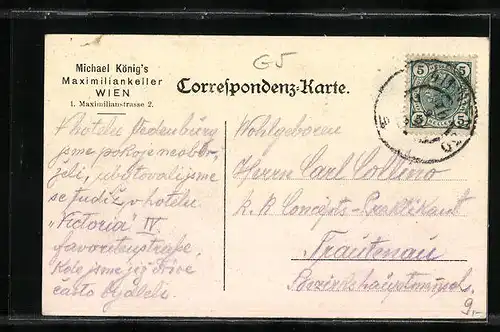 Michael König's
Maximiliankeller
WIEN
1. Maximilianstrasse 2.
G5
Correspondenz-Karte.
5 5
5 5
V hotelu
jsme pokoje neobdr-
želi, ubytovali jsme
se tudíž v hotelu
"Victoria" IV.
Favoritenstraße,
kde jsme již dříve
často bydleli.
Wohlgeboren
Herrn Carl
k. k. Concepts-Praktikant
Trautenau
Bezirkshauptmansch.
9.-